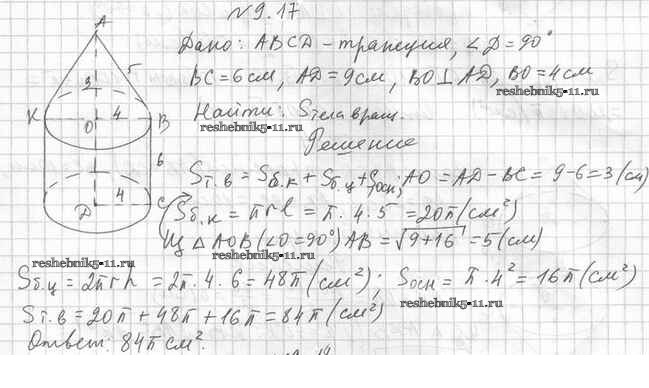 № 9.17
Дано: ABCD - трапеция, ∠D = 90°
BC = 6 см, AD = 9 см, BO ⊥ AD, BO = 4 см
reshebnik5-11.ru
Найти: Sтела вращ.
reshebnik5-11.ru
Решение
Sт.в = Sб.к + Sб.ц + Sосн; AO = AD - BC = 9 - 6 = 3 (см)
Sб.к = πrl = π · 4 · 5 = 20π (см²)
Из △ AOB (∠O = 90°) AB = √9+16 = 5 (см)
reshebnik5-11.ru
Sб.ц = 2πrh = 2π · 4 · 6 = 48π (см²); Sосн = π · 4² = 16π (см²)
reshebnik5-11.ru
Sт.в = 20π + 48π + 16π = 84π (см²)
Ответ: 84π см².
A
3
5
K
O
4
B
6
D
4
C